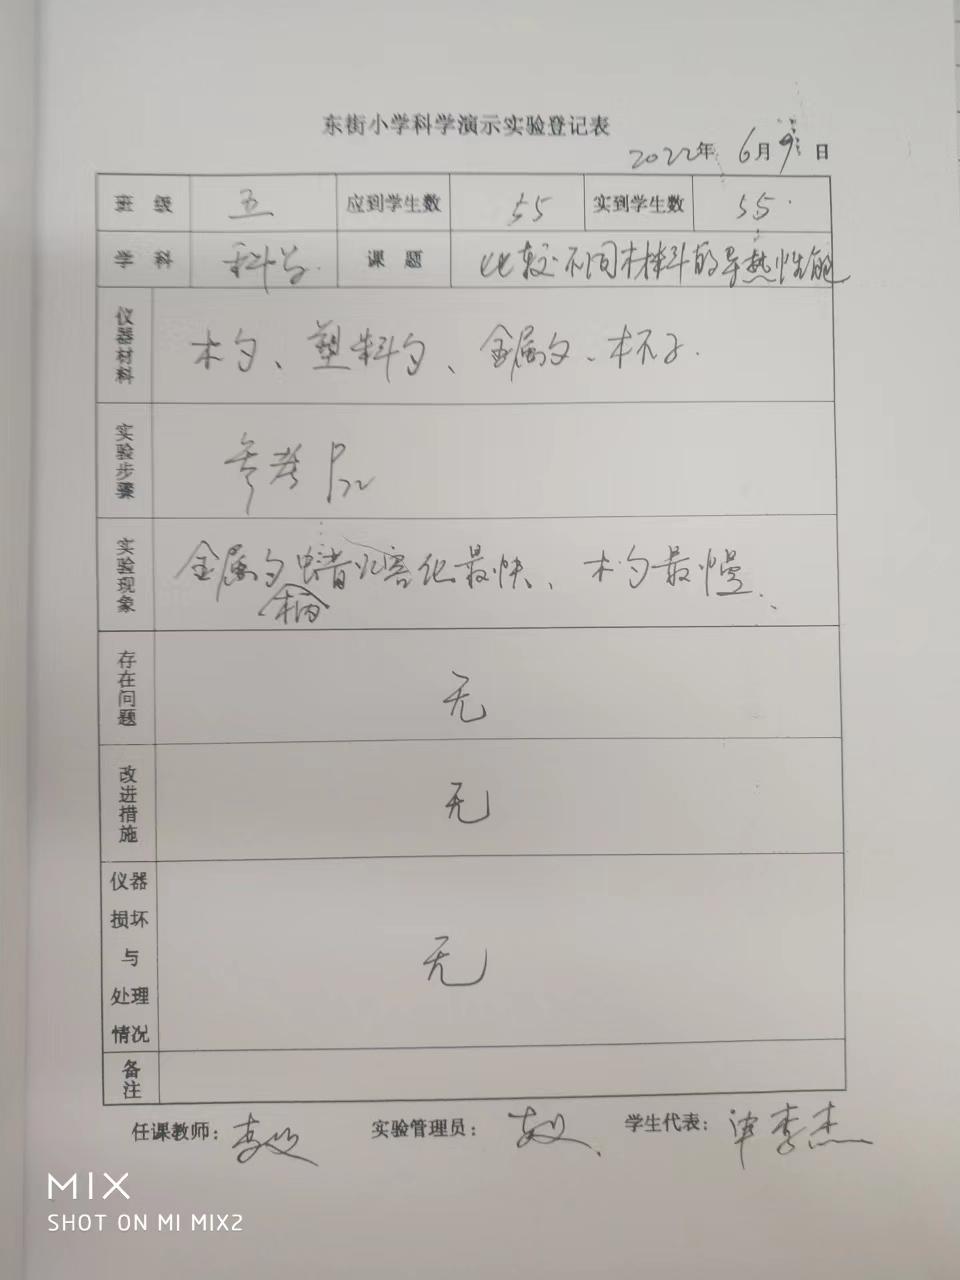 东街小学科学演示实验登记表
2022年 6月 9日
班级 五 应到学生数 55 实到学生数 55
学科 科学 课题 比较不同材料的导热性能
仪器材料 木勺、塑料勺、金属勺、杯子.
实验步骤 参考P72
实验现象 金属勺柄蜡熔化最快、木勺最慢、
存在问题 无
改进措施 无
仪器损坏与处理情况 无
备注
任课教师: 实验管理员: 学生代表:
MIX
SHOT ON MI MIX2